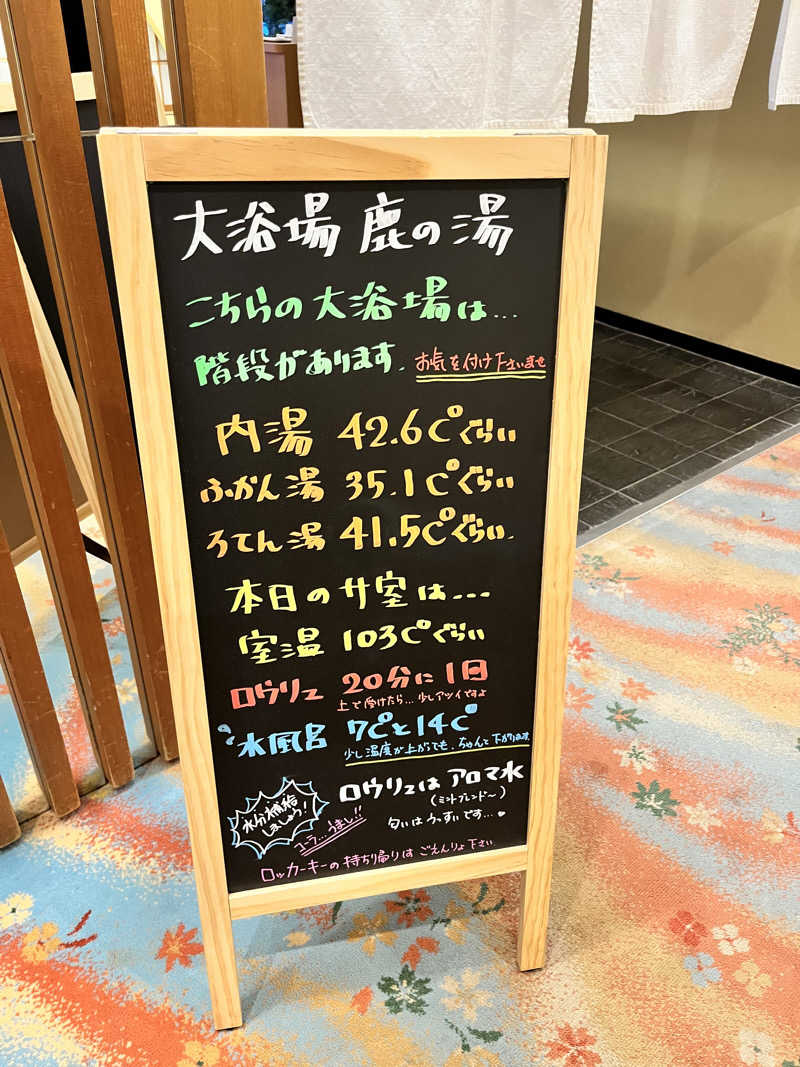 大浴場 鹿の湯
こちらの大浴場は...
階段があります. お気を付け下さいませ
内湯 42.6C°ぐらい
ふかん湯 35.1C°ぐらい
ろてん湯 41.5C°ぐらい.
本日のサ室は...
室温 103C°ぐらい
ロウリュ 20分に1回
上で受けたら...少しアツイですよ
水風呂 7C°と14C°
少し温度が上がっても、ちゃんと下がります
ロウリュは アロマ水
(ミントブレンド〜)
匂いはうっすいです...
水分補給
しましょう!
コーラ...うまし!!
ロッカーキーの持ち帰りは ごえんりょ下さい